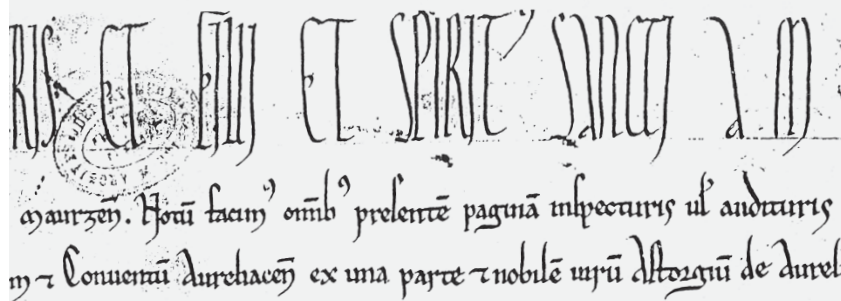 RIS ET FILII ET SPIRIT᾽ SANCTI A M
maurzen̄. Notū facim᾽ omīb᾽ presentē paginā inspecturis ul̓ audituris
m ⁊ Conventū Aureliacen̄ ex una parte ⁊ nobilē uirū Astorgiū de Aureli